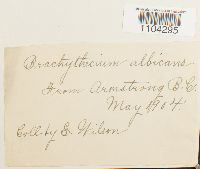 1104295
Brachythecium albicans
From Armstrong B.C.
May 1904
Coll. by E. Wilson